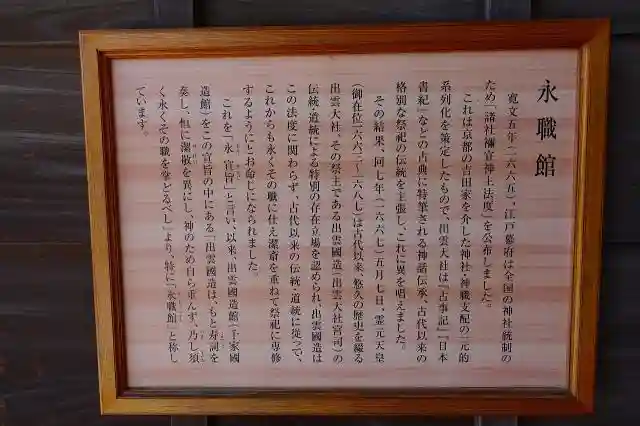 永職館
寛文五年（一六六五）、江戸幕府は全国の神社統制の
ため「諸社禰宜神主法度」を公布しました。
これは京都の吉田家を介した神社・神職支配の一元的
系列化を策定したもので、出雲大社は『古事記』『日本
書紀』などの古典に特筆される神話伝承、古代以来の
格別な祭祀の伝統を主張し、これに異を唱えました。
その結果、同七年（一六六七）五月七日、霊元天皇
（御在位一六六三〜一六八七）は古代以来、悠久の歴史を綴る
出雲大社、その祭主である出雲國造（出雲大社宮司）の
伝統・道統による特別の存在立場を認められ、出雲國造は
この法度に関わらず、古代以来の伝統・道統に従って、
これからも永くその職に仕え潔斎を重ねて祭祀に専修
するようにとお命じになられました。
これを「永宣旨」と言い、以来、出雲國造館（千家國
造館）をこの宣旨の中にある「出雲國造は、もと寿詞を
奏し、恒に潔敬を異にし、神のため自ら重んず、乃し須
く永くその職を掌どるべし」より、特に「永職館」と称し
ています。